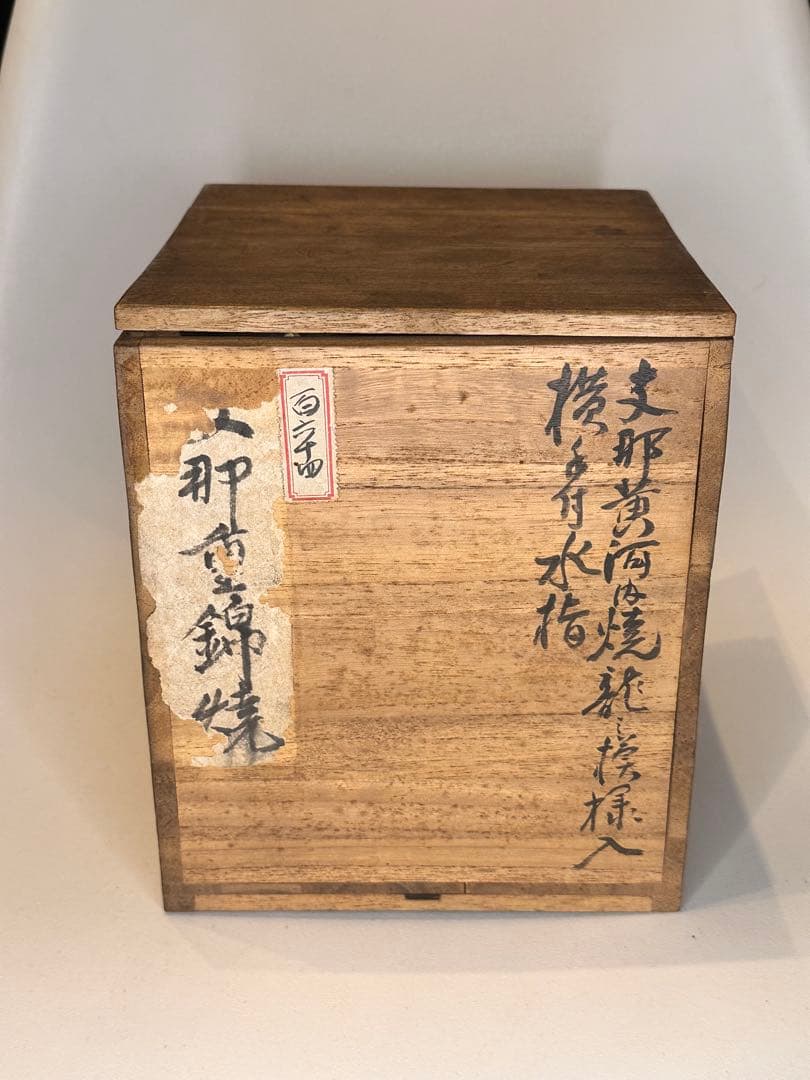 支那黄河内焼龍之模様入
横手付水指
百六十四
那重錦焼